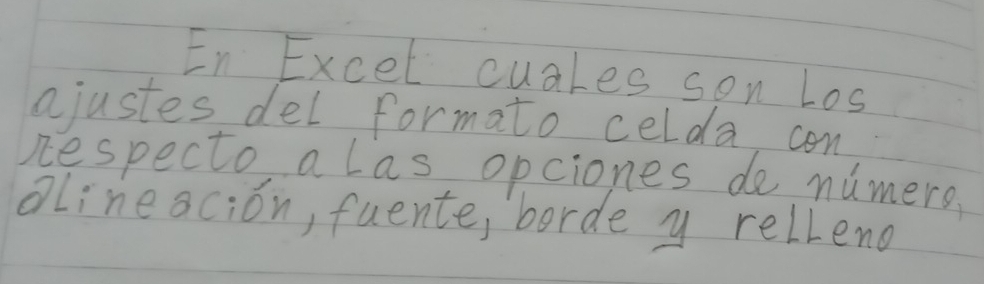 En Excel cuales son los
ajustes del formato celda con
respecto a las opciones de número,
alineación, fuente, borde y relleno